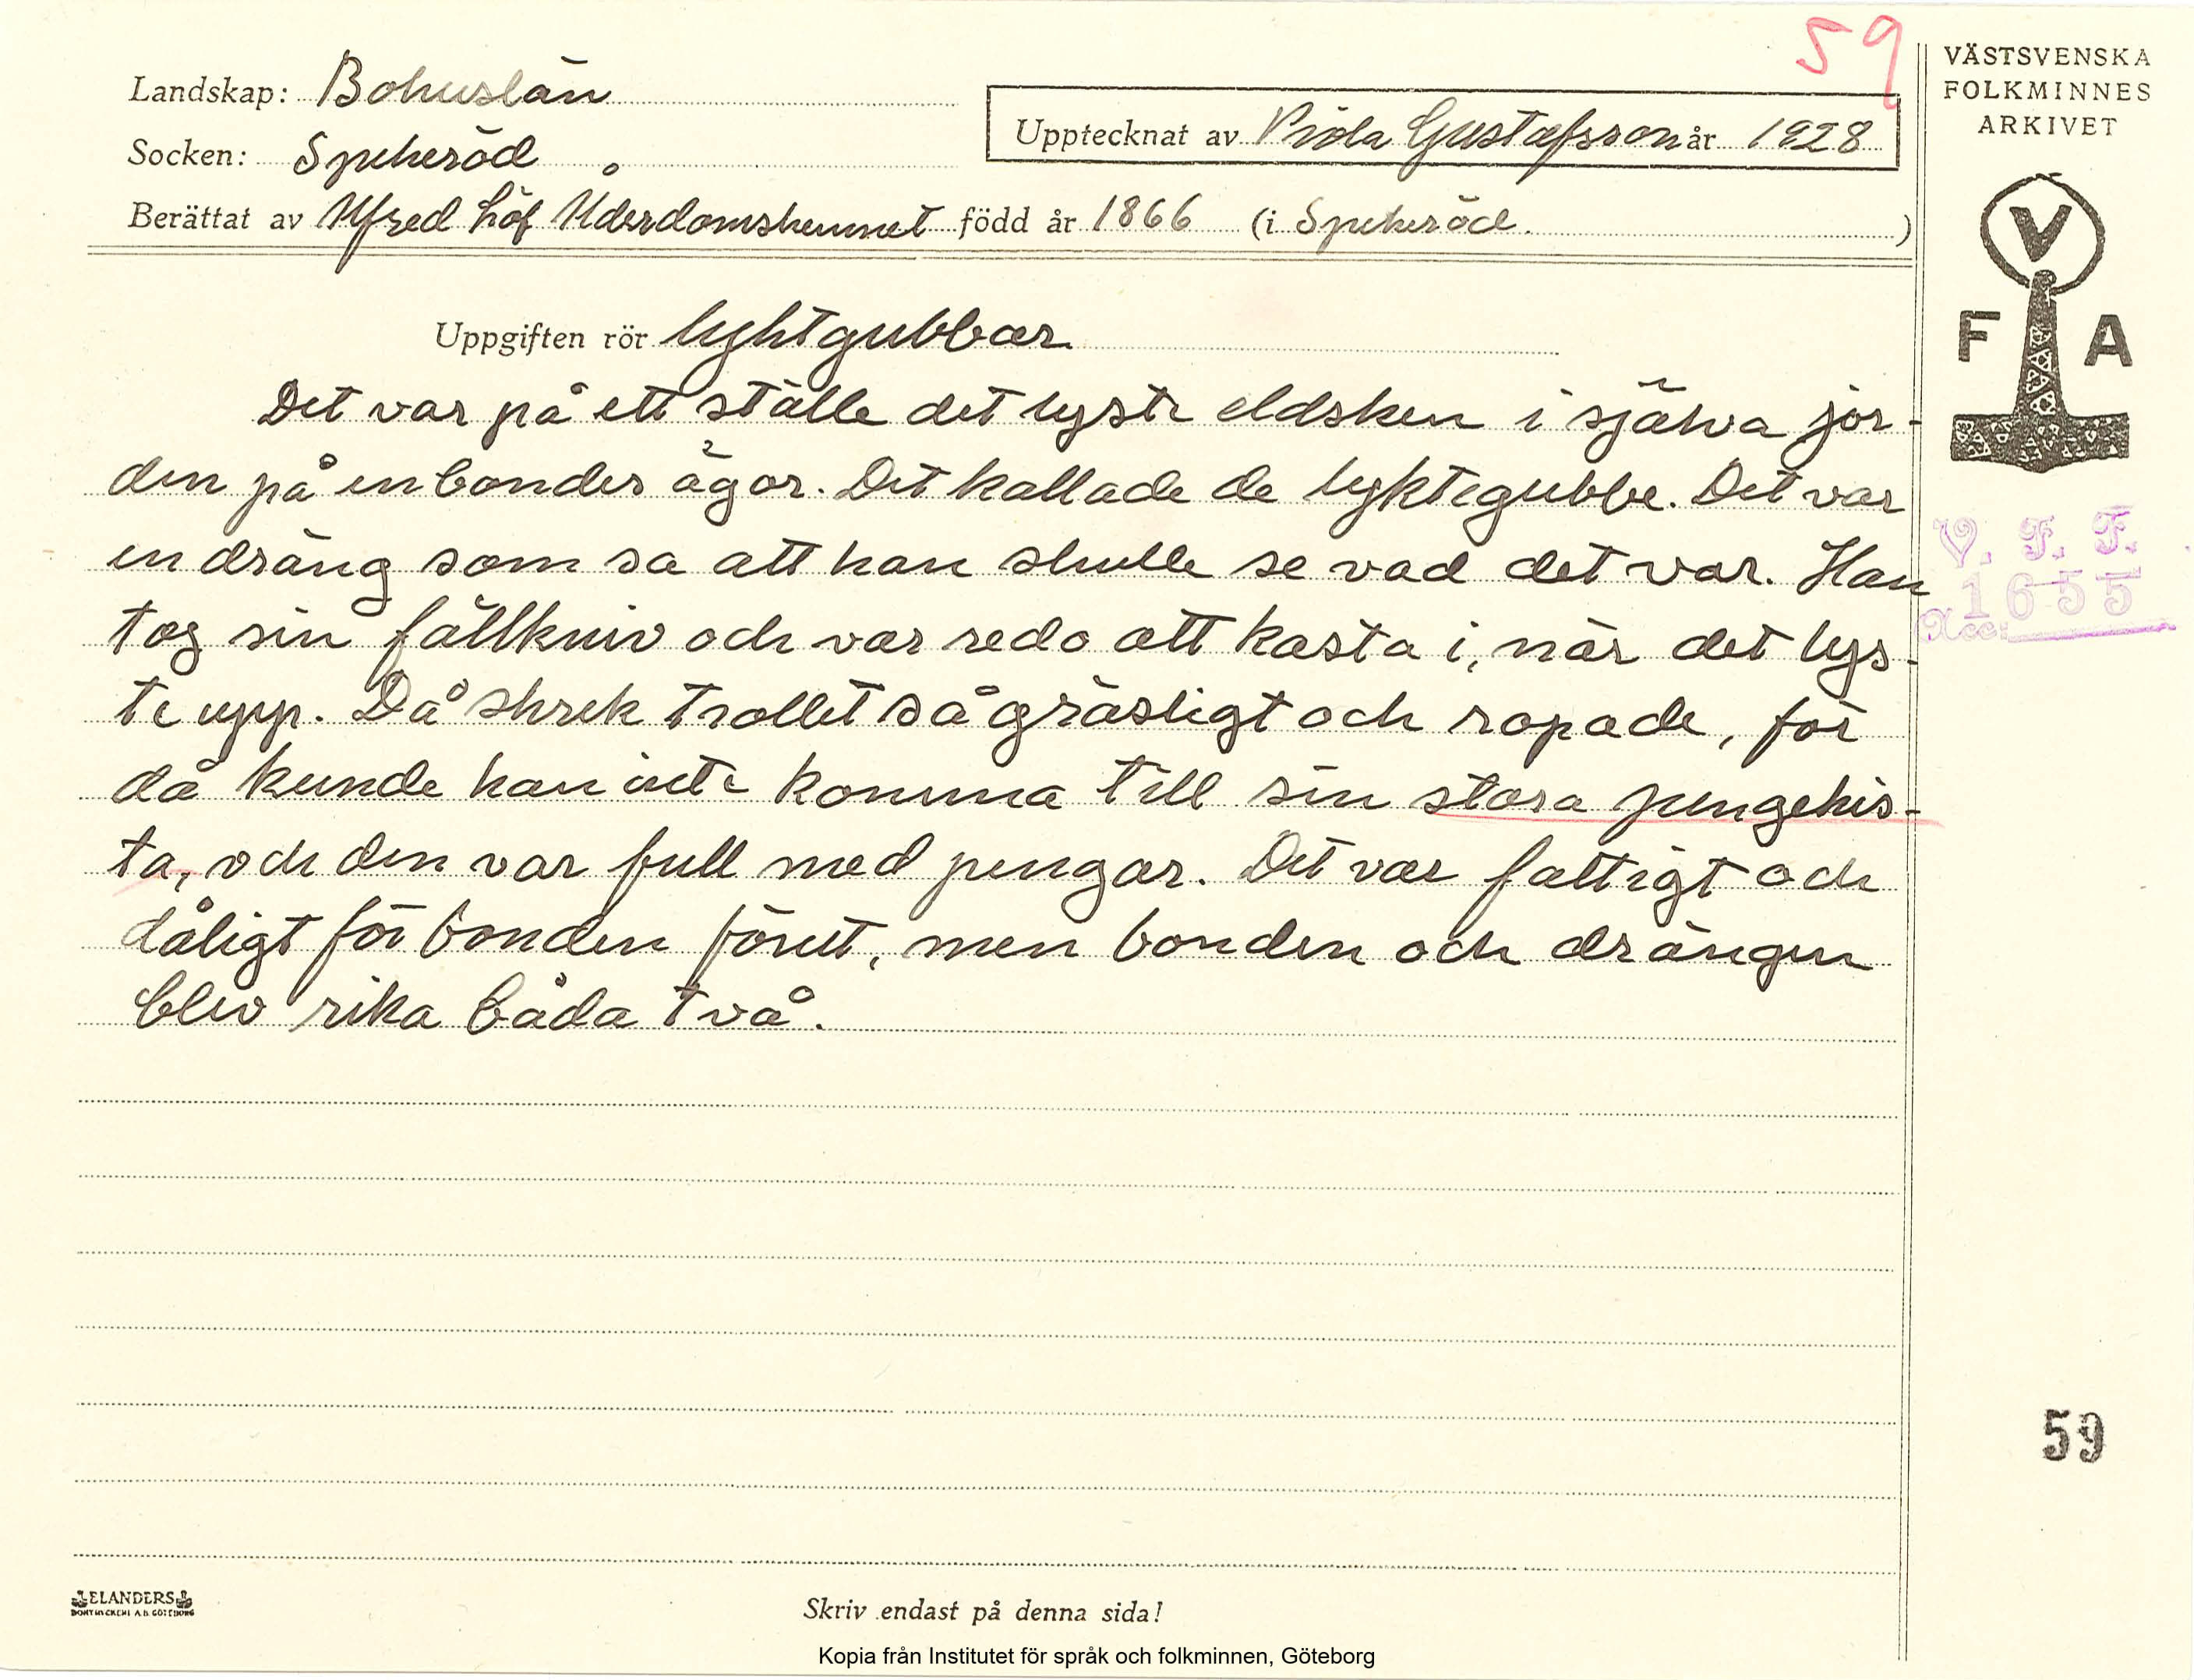 59
VÄSTSVENSKA
FOLKMINNES
ARKIVET
Landskap: Bohuslän
Upptecknat av Viola Gustafsson år 1928
Socken: Spekeröd
Berättat av Alfred Löf Ålderdomshemmet född år 1866 (i Spekeröd.)
V
F A
Uppgiften rör lyktgubbar
Det var på ett ställe det lyste eldsken i själva jor-
den på en bondes ägor. Det kallade de lyktegubbe. Det var
en dräng som sa att han skulle se vad det var. Han
tog sin fällkniv och var redo att kasta i, när det lys-
te upp. Då skrek trollet så gräsligt och ropade, för
då kunde han inte komma till sin stora pengekis-
ta, och den var full med pengar. Det var fattigt och
dåligt för bonden förut, men bonden och drängen
blev rika båda två.
V. F. F.
1655
Acc:
59
ELANDERS
BOKTRYCKERI A.B. GÖTEBORG
Skriv endast på denna sida!
Kopia från Institutet för språk och folkminnen, Göteborg